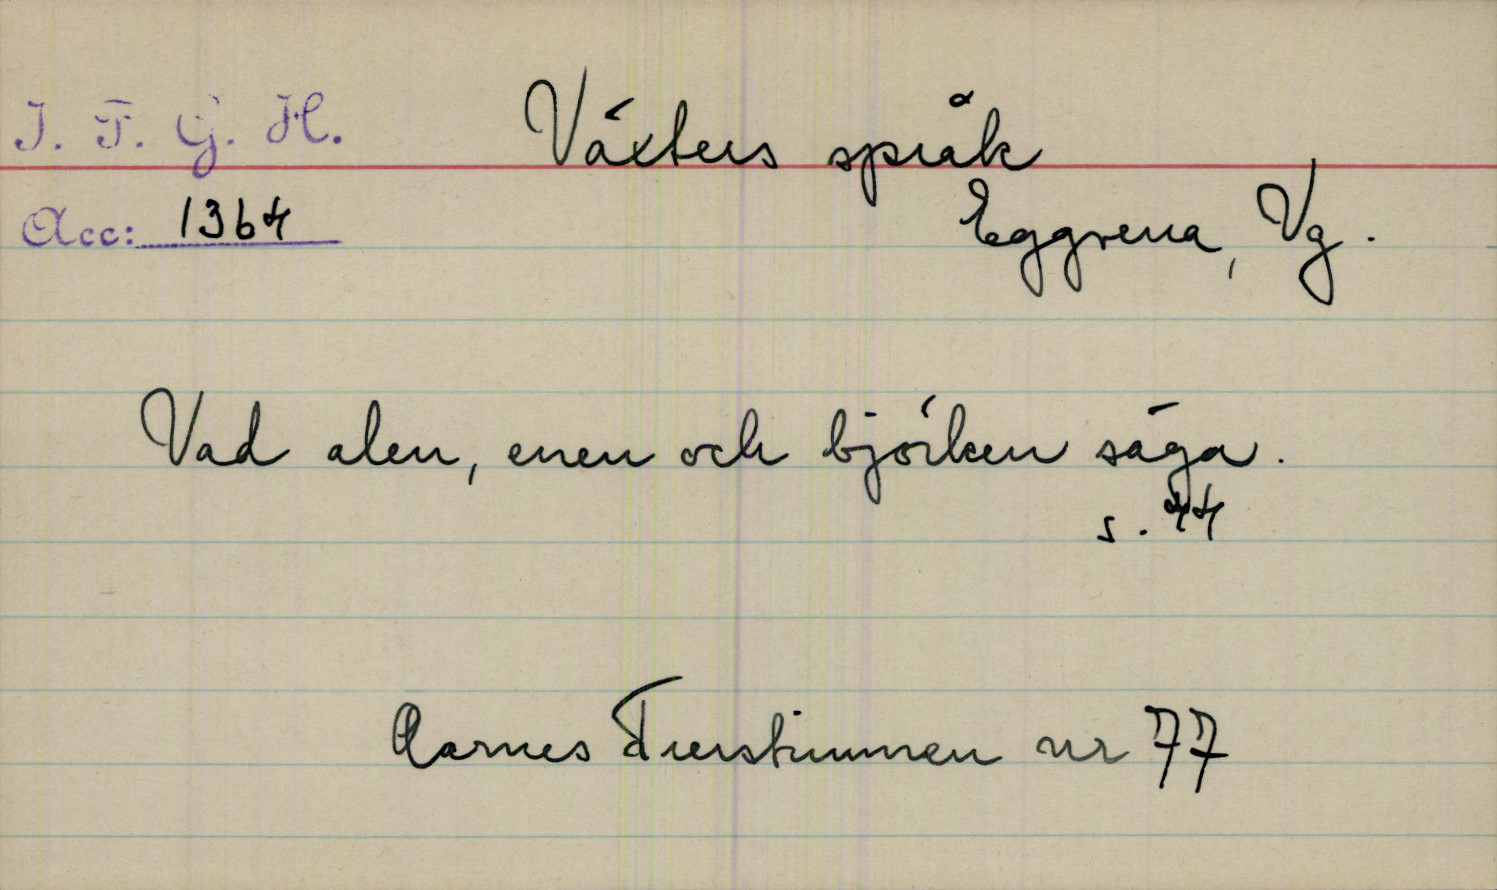 I. F. G. H. Växters språk
Acc: 1364 Eggvena, Vg.
Vad alen, enen och björken säga.
s. 44
Aarnes Tierstimmen nr 77